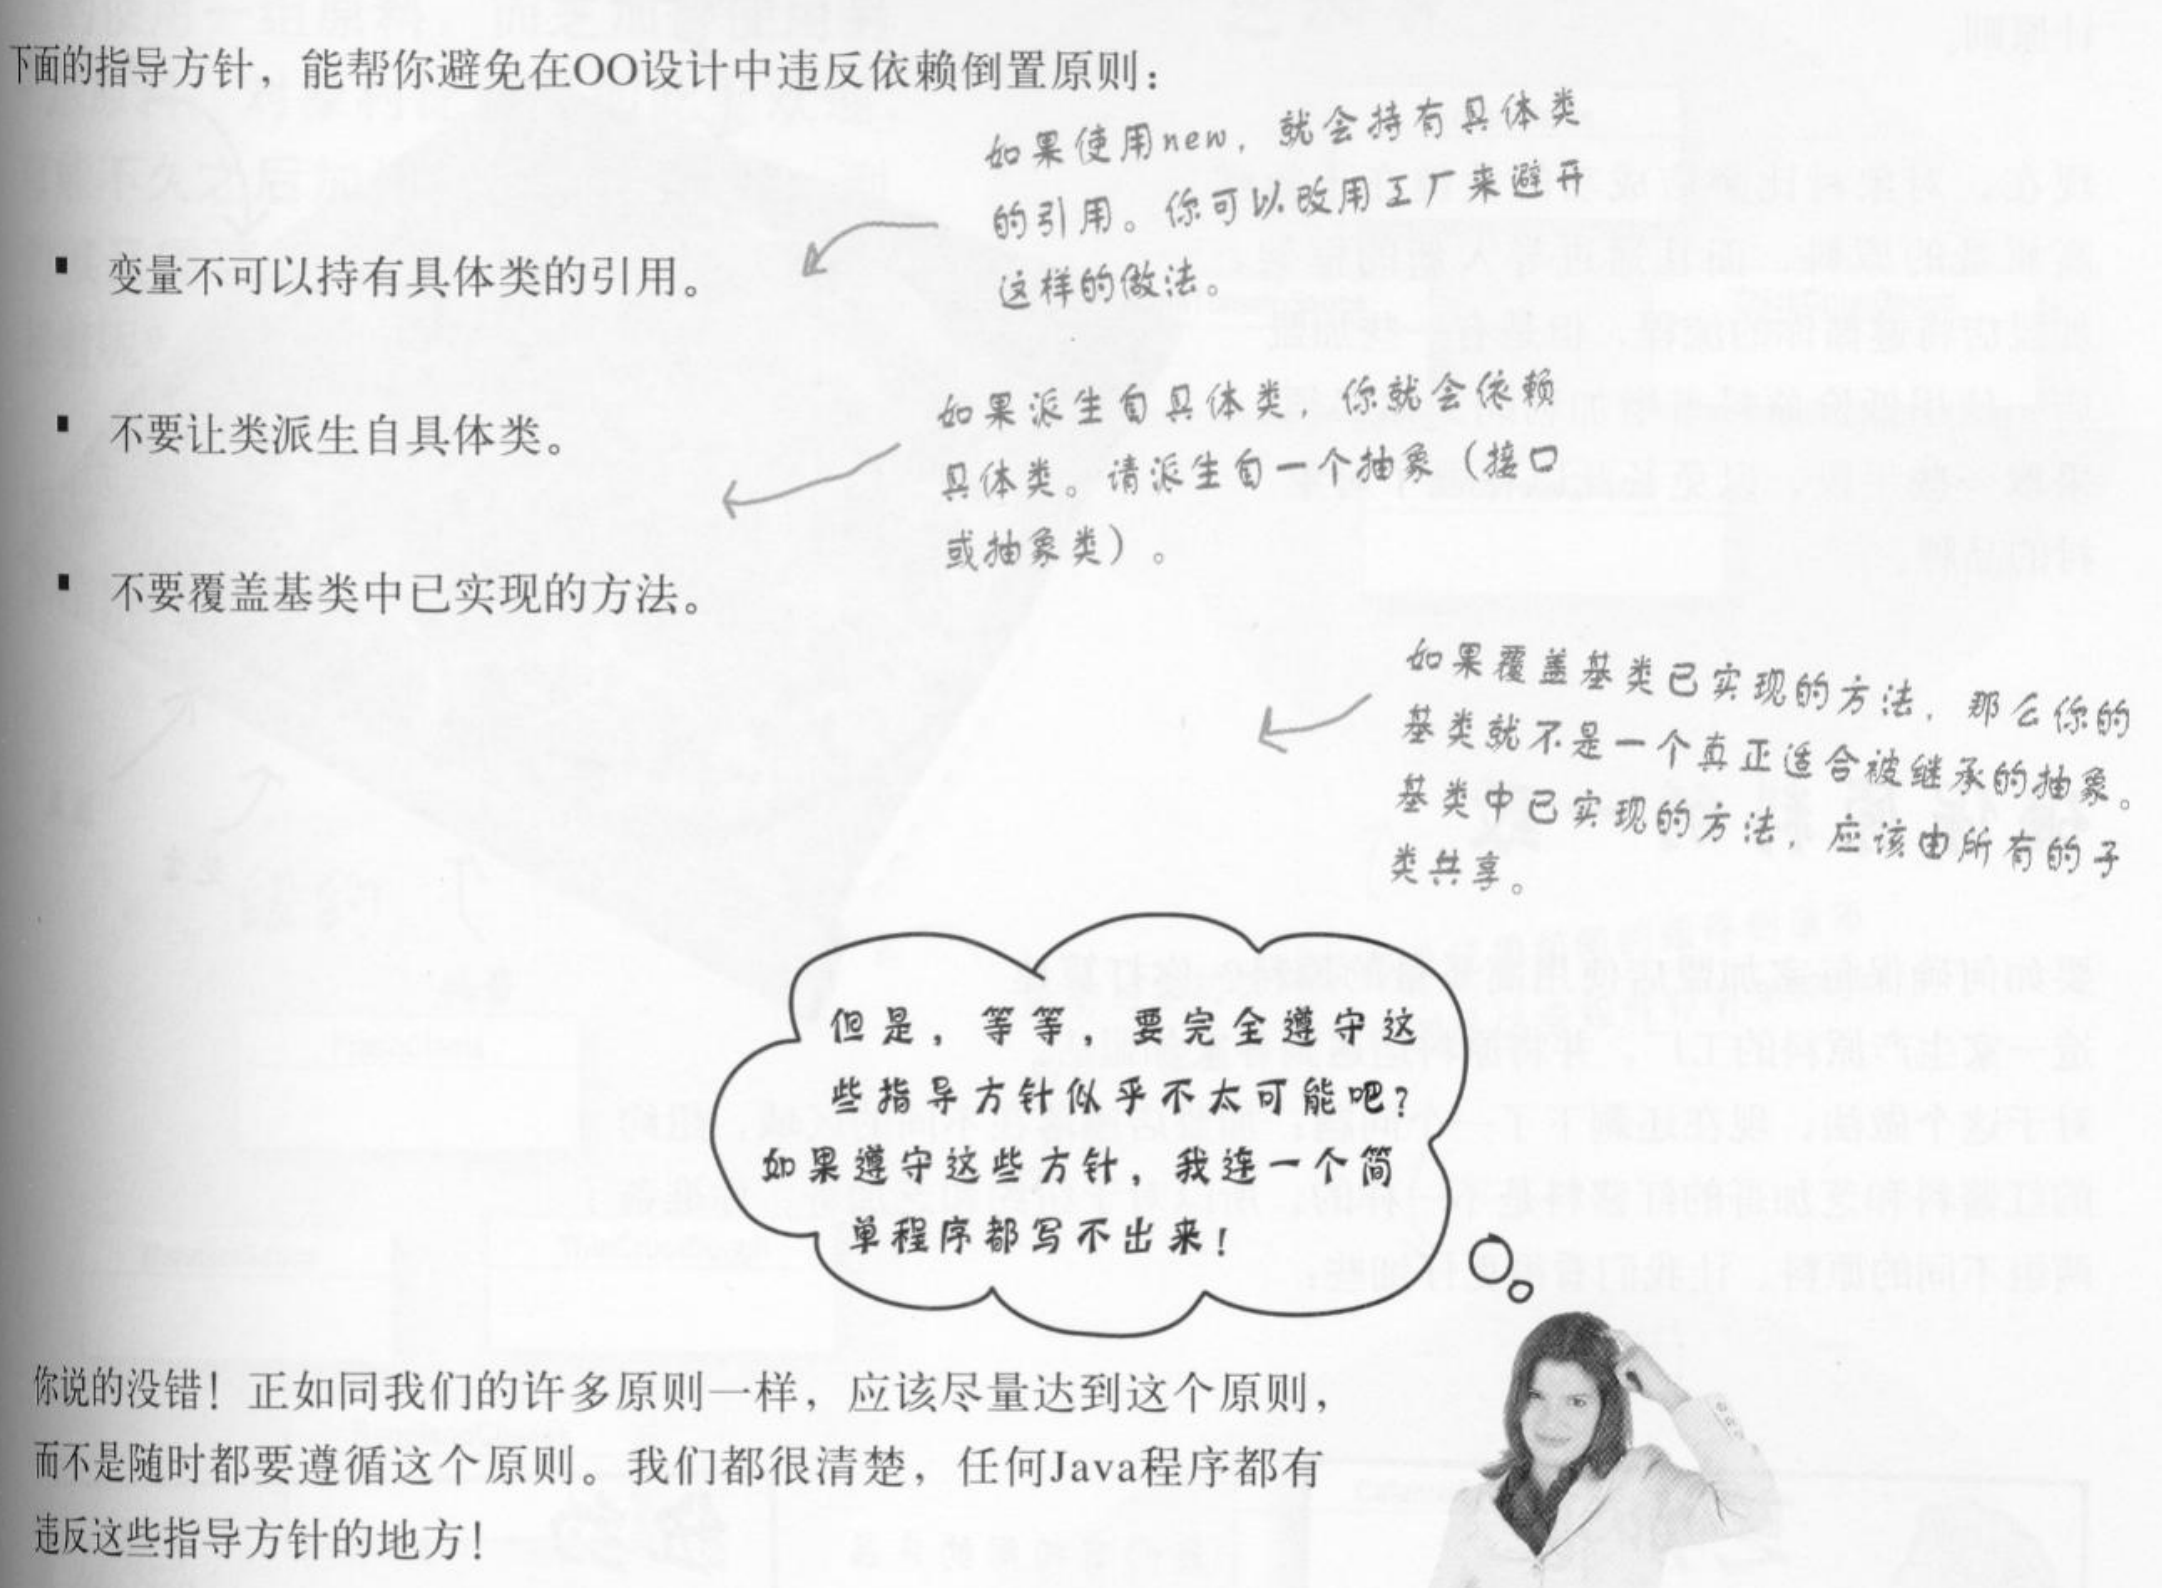 下面的指导方针，能帮你避免在OO设计中违反依赖倒置原则：
如果使用new，就会持有具体类
的引用。你可以改用工厂来避开
这样的做法。
▪ 变量不可以持有具体类的引用。
如果派生自具体类，你就会依赖
具体类。请派生自一个抽象（接口
或抽象类）。
▪ 不要让类派生自具体类。
▪ 不要覆盖基类中已实现的方法。
如果覆盖基类已实现的方法，那么你的
基类就不是一个真正适合被继承的抽象。
基类中已实现的方法，应该由所有的子
类共享。
但是，等等，要完全遵守这
些指导方针似乎不太可能吧？
如果遵守这些方针，我连一个简
单程序都写不出来！
你说的没错！正如同我们的许多原则一样，应该尽量达到这个原则，
而不是随时都要遵循这个原则。我们都很清楚，任何Java程序都有
违反这些指导方针的地方！